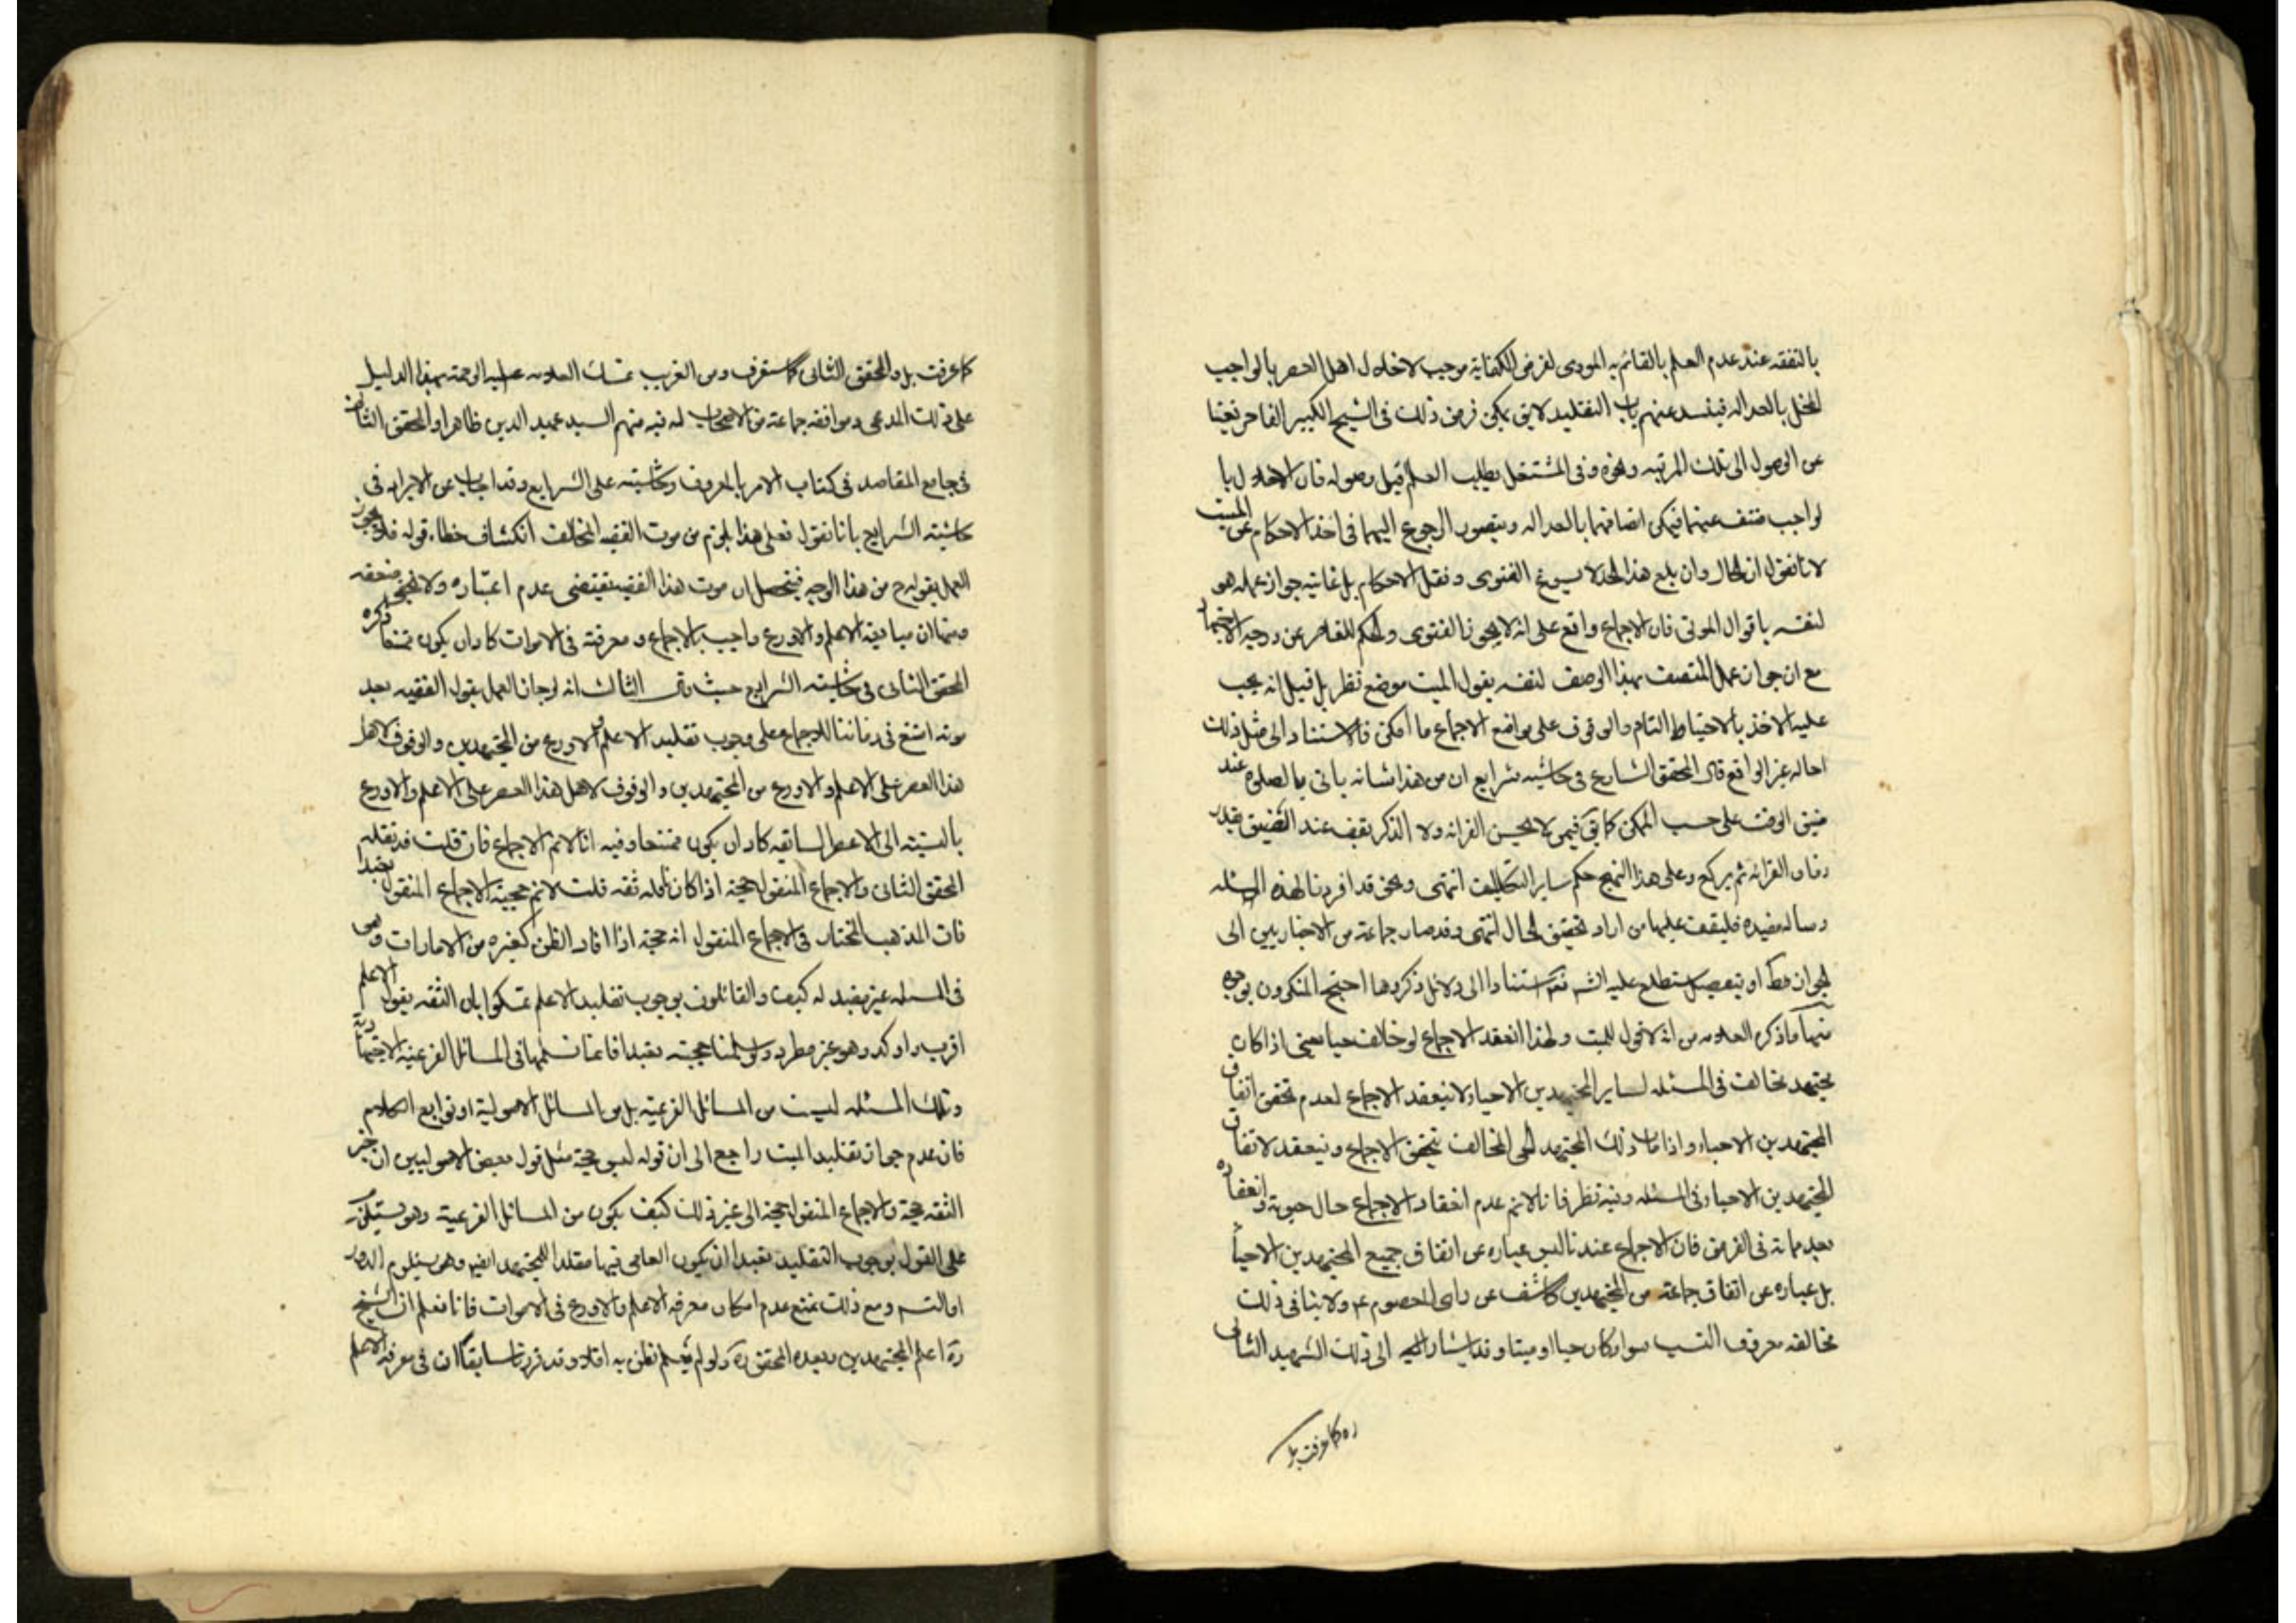 بالتفقه عند عدم العلم بالقائم به المودى لفرض الكفاية موجب لاخلال اهل العصر بالواجب
المخل بالعداله فينسد عنهم باب التقليد لايق يمكن فرض ذلك فى الشيخ الكبير القاصر
عن الوصول الى تلك المرتبه ونحوه وفى المشتغل بطلب العلم قبل وصوله فان الاخلال با
لواجب منتف عنهما فيمكن اتصافهما بالعداله ويتصور الرجوع اليهما فى اخذ الاحكام عن الميت
لانا نقول ان الحال وان بلغ هذا الحد لا يسوغ الفتوى ونقل الاحكام بل غايته جواز عمله هو
لنفسه باقوال الموتى فان الاجماع واقع على انه لا يجوز الفتوى والحكم للقاصر عن درجه الاجتهاد
مع ان جواز عمل المتصف بهذا الوصف لنفسه بقول الميت موضع نظر بل قيل انه يجب
عليه الاخذ بالاحتياط التام والوقوف على مواضع الاجماع ما امكن فالاستناد الى مثل ذلك
احاله غير الواقع قال المحقق الشارح فى حاشيه شرايع ان من هذا شانه ياتى بالصلوة عند
ضيق الوقت على حسب الممكن كما فى فيمن لا يحسن القرائه ولا الذكر يقف عند التضيق بقدر
زمان القرائه ثم يركع وعلى هذا النهج حكم ساير التكاليف انتهى ونحن قد افردنا لهذه المسئله
رساله مفيده فليقف عليها من اراد تحقيق الحال انتهى وقد صار جماعة من الاخباريين الى
الجواز مط او بتفصيل ستطلع عليه استنادا الى دلائل ذكروها احتج المنكرون بوجوه
منها ما ذكره العلامه من انه لا قول للميت ولهذا انعقد الاجماع لو خالف حيا يعنى اذا كان
مجتهد مخالف فى المسئله لساير المجتهدين الاحياء لا ينعقد الاجماع لعدم تحقق اتفاق
المجتهدين الاحياء واذا مات ذلك المجتهد الحى المخالف تحقق الاجماع وينعقد لاتفاق
المجتهدين الاحياء فى المسئله وفيه نظر فانا لانم عدم انعقاد الاجماع حال حيوته وانعقاده
بعد مماته فى الفرض فان الاجماع عندنا ليس عباره عن اتفاق جميع المجتهدين الاحياء
بل عباره عن اتفاق جماعة من المجتهدين كاشف عن راى المعصوم ع ولا ينافى ذلك
مخالفه معروف النسب سواء كان حيا او ميتا وقد اشار الى ذلك الشهيد الثانى
ره كما عرفت بل
كما عرفت بل والمحقق الثانى كما ستعرف ومن الغريب تمسك العلامه عليه الرحمة بهذا الدليل
على ذلك المدعى وموافقه جماعة من الاصحاب له فيه منهم السيد عميد الدين ظاهرا والمحقق الثانى
فى جامع المقاصد فى كتاب الامر بالمعروف وحاشيته على الشرايع وقد اجاب عن الايراد فى
حاشيته الشرايع بانا نقول فعلى هذا يلزم من موت الفقيه المخالف انكشاف خطاء قوله فلا يجوز
العمل بقوله ح من هذا الوجه فيتحصل ان موت هذا الفقيه يقتضى عدم اعتباره ولا يخفى ضعفه
ومنها ان متابعة الاعلم والاورع واجب بالاجماع ومعرفته فى الاموات كاد ان يكون ممتنعا ذكره
المحقق الثانى فى حاشيته الشرايع حيث قال الثالث انه لو جاز العمل بقول الفقيه بعد
موته امتنع فى زماننا للاجماع على وجوب تقليد الاعلم والاورع من المجتهدين والوقوف لاهل
هذا العصر على الاعلم والاورع من المجتهدين والوقوف لاهل هذا العصر على الاعلم والاورع
بالنسبة الى الاعصار السابقه كاد ان يكون ممتنعا وفيه انا لانم الاجماع فان قلت قد نقله
المحقق الثانى والاجماع المنقول حجة اذا كان ناقله ثقه قلت لانم حجية الاجماع المنقول تعبدا
فان المذهب المختار فى الاجماع المنقول انه حجة اذا افاد الظن كغيره من الامارات وهى
فى المسئله غير مفيد له كيف والقائلون بوجوب تقليد الاعلم تمسكوا بان الثقه بقول الاعلم
اقرب واوكد وهو غير مطرد ولو سلمنا حجيته تعبدا فانما نسلمها فى المسائل الفرعية الاجتهادية
وتلك المسئله ليست من المسائل الفرعية بل من المسائل الاصولية او توابع الكلام
فان عدم جواز تقليد الميت راجع الى ان قوله ليس بحجة مثل قول بعض الاصوليين ان خبر
الثقه حجة والاجماع المنقول حجة الى غير ذلك كيف يكون من المسائل الفرعية وهو يستلزم
على القول بوجوب التقليد تعبدا ان يكون العامى فيها مقلدا للمجتهد ايضا وهو يستلزم الدور
او التسه ومع ذلك نمنع عدم امكان معرفه الاعلم والاورع فى الاموات فانا نعلم ان الشيخ
ره اعلم المجتهدين وبعده المحقق ره ولو لم نعلم نظن به افلا وقد قررنا سابقا ان فى معرفه الاعلم